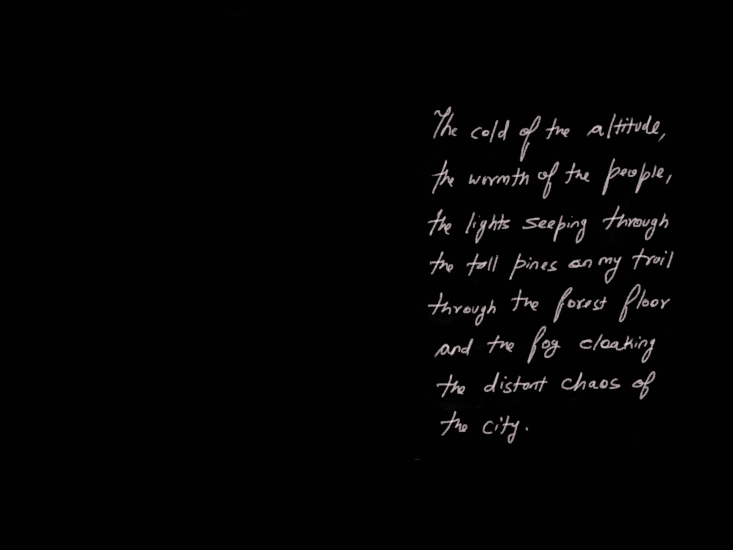 The cold of the altitude,
the warmth of the people,
the lights seeping through
the tall pines on my trail
through the forest floor
and the fog cloaking
the distant chaos of
the city.